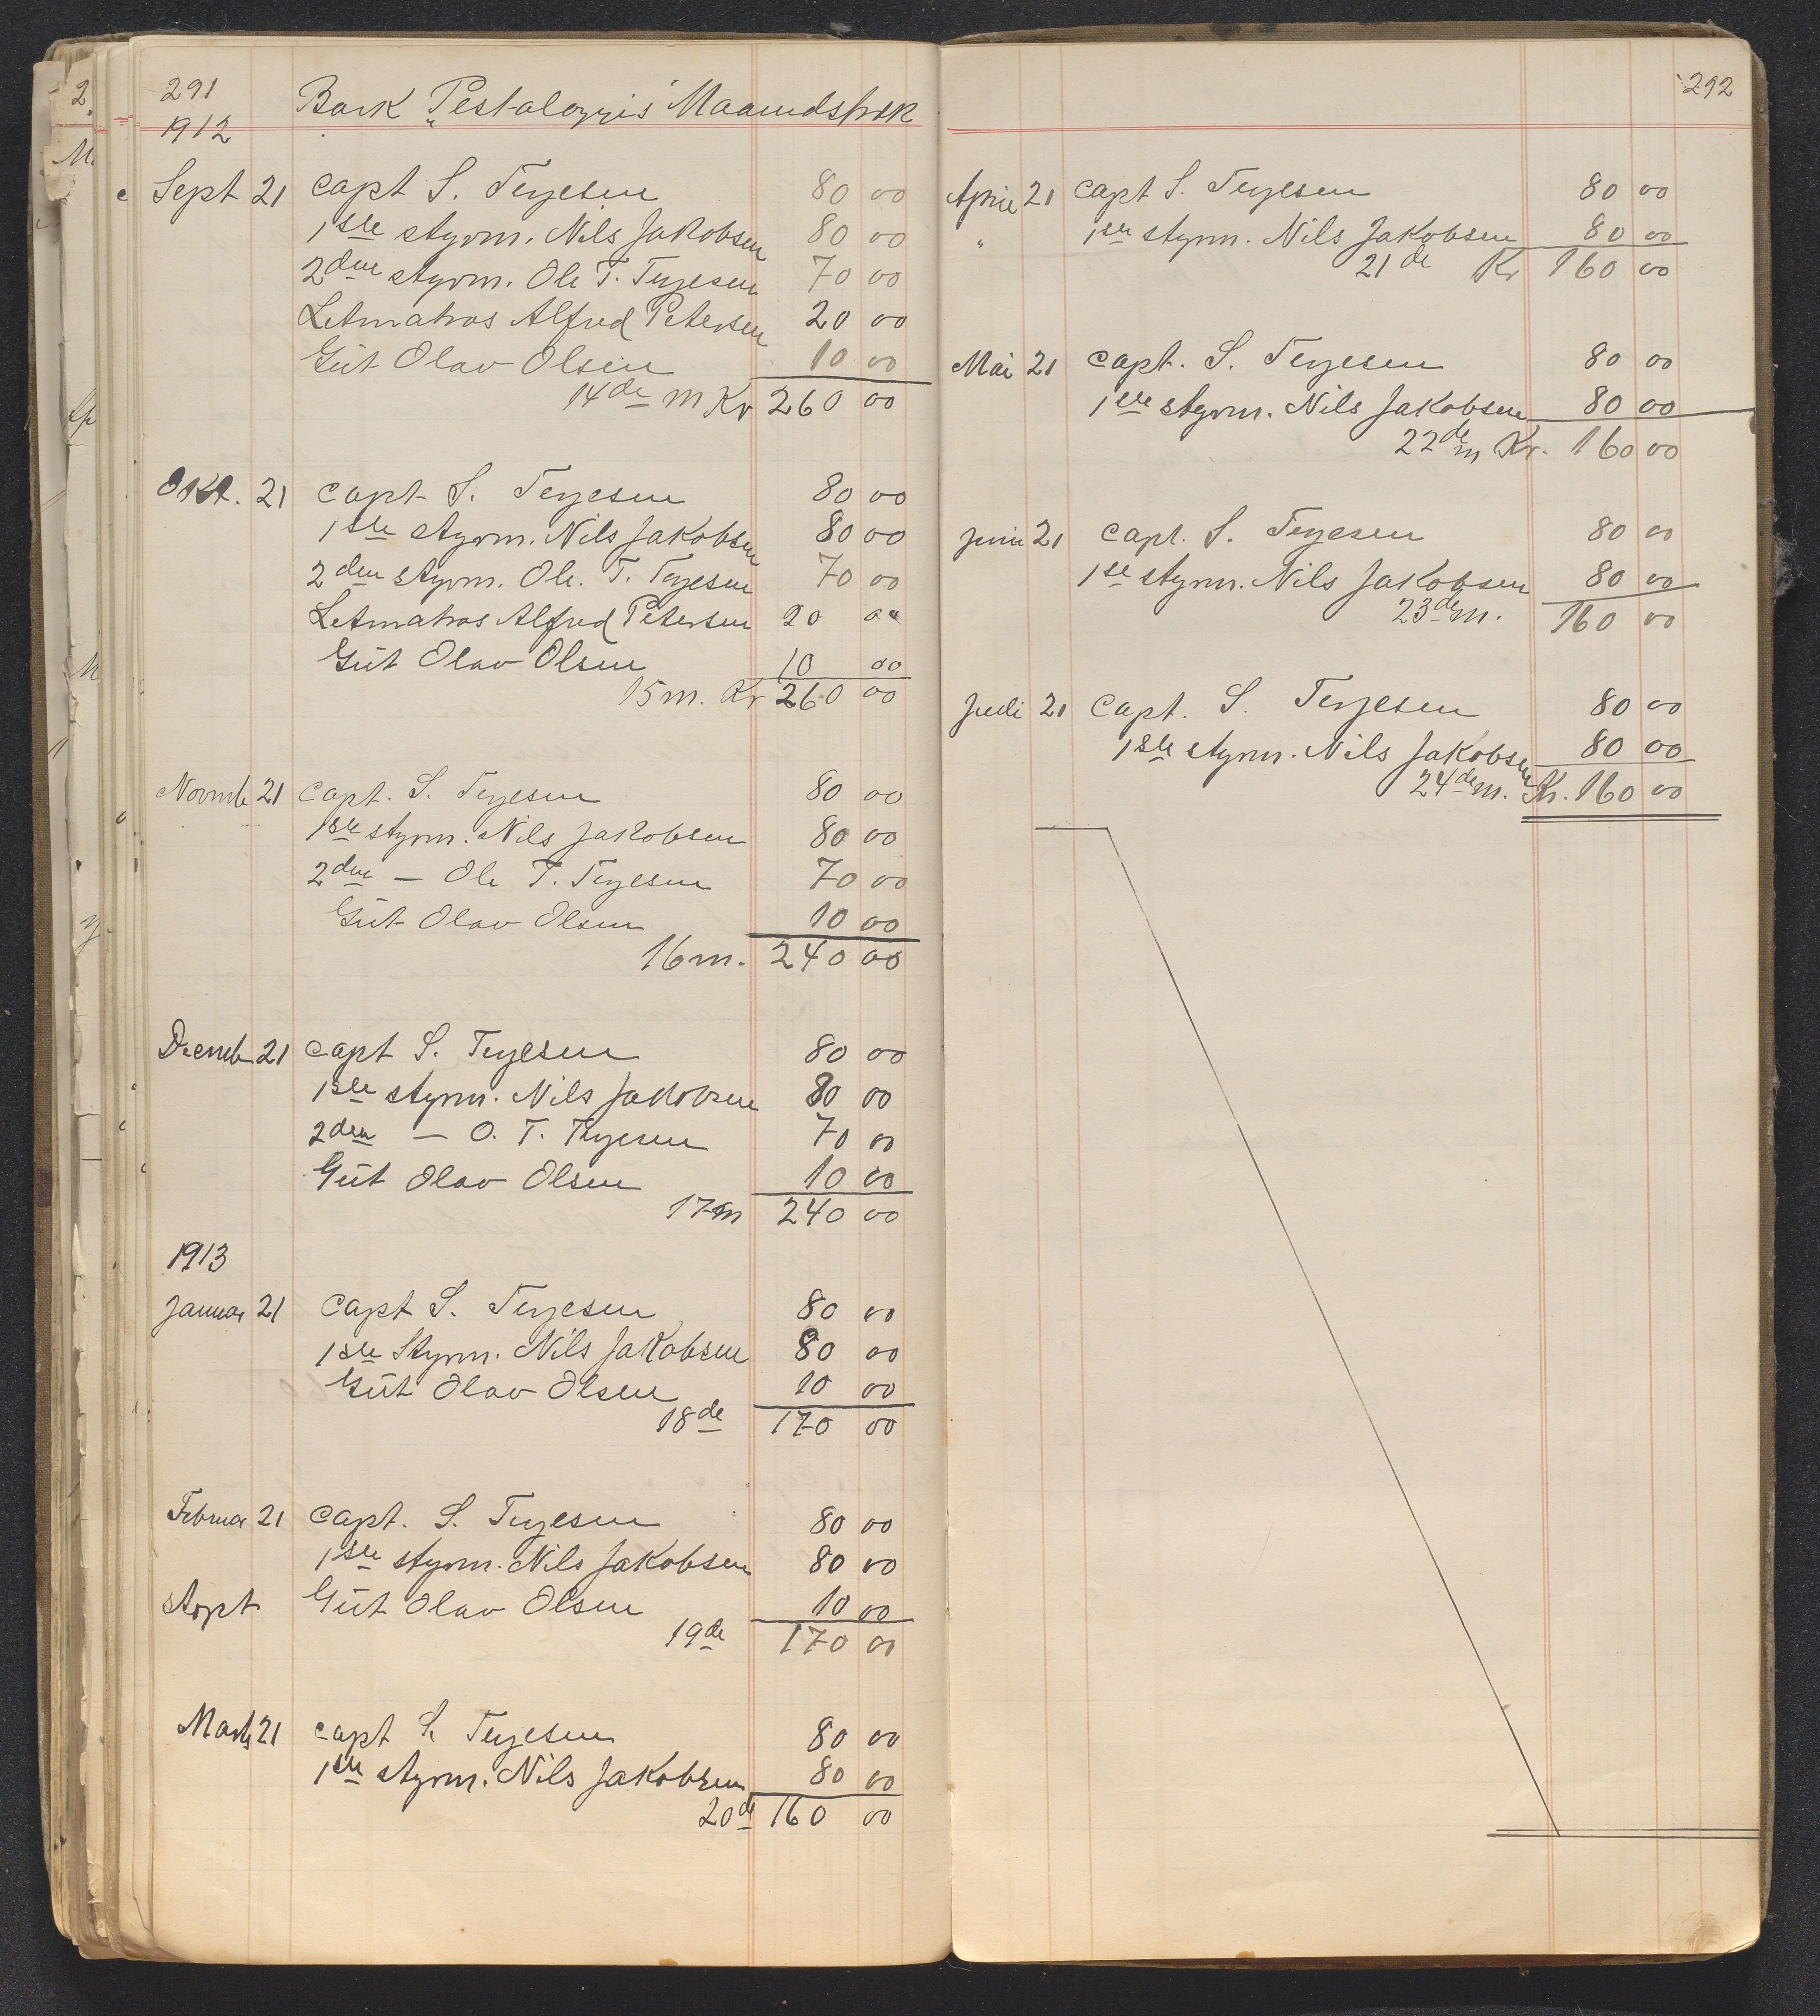 291
1912
Bark "Pestalozzis" Maanedstræk
Sept 21 Capt S. Terjesen 80 00
1ste styrm. Nils Jakobsen 80 00
2den styrm. Ole T. Terjesen 70 00
Letmatros Alfred Petersen 20 00
Gut Olav Olsen 10 00
14de m Kr 260 00
Okt. 21 Capt S. Terjesen 80 00
1ste styrm. Nils Jakobsen 80 00
2den styrm. Ole. T. Terjesen 70 00
Letmatros Alfred Petersen 20 00
Gut Olav Olsen 10 00
15 m. Kr 260 00
Novmb 21 Capt. S. Terjesen 80 00
1ste styrm. Nils Jakobsen 80 00
2den — Ole T. Terjesen 70 00
Gut Olav Olsen 10 00
16 m. 240 00
Decmb 21 Capt S. Terjesen 80 00
1ste styrm. Nils Jakobsen 80 00
2den — O. T. Terjesen 70 00
Gut Olav Olsen 10 00
17 m 240 00
1913
Januar 21 Capt S. Terjesen 80 00
1ste Styrm. Nils Jakobsen 80 00
Gut Olav Olsen 10 00
18de 170 00
Februar 21 Capt. S. Terjesen 80 00
1ste styrm. Nils Jakobsen 80 00
stopt Gut Olav Olsen 10 00
19de 170 00
Marts 21 Capt S. Terjesen 80 00
1ste styrm. Nils Jakobsen 80 00
20de 160 00
292
April 21 Capt S. Terjesen 80 00
" 1ste styrm. Nils Jakobsen 80 00
21de Kr 160 00
Mai 21 Capt. S. Terjesen 80 00
1ste styrm. Nils Jakobsen 80 00
22de m Kr. 160 00
Juni 21 Capt. S. Terjesen 80 00
1ste styrm. Nils Jakobsen 80 00
23de m. 160 00
Juli 21 Capt. S. Terjesen 80 00
1ste styrm. Nils Jakobsen 80 00
24de m. Kr. 160 00